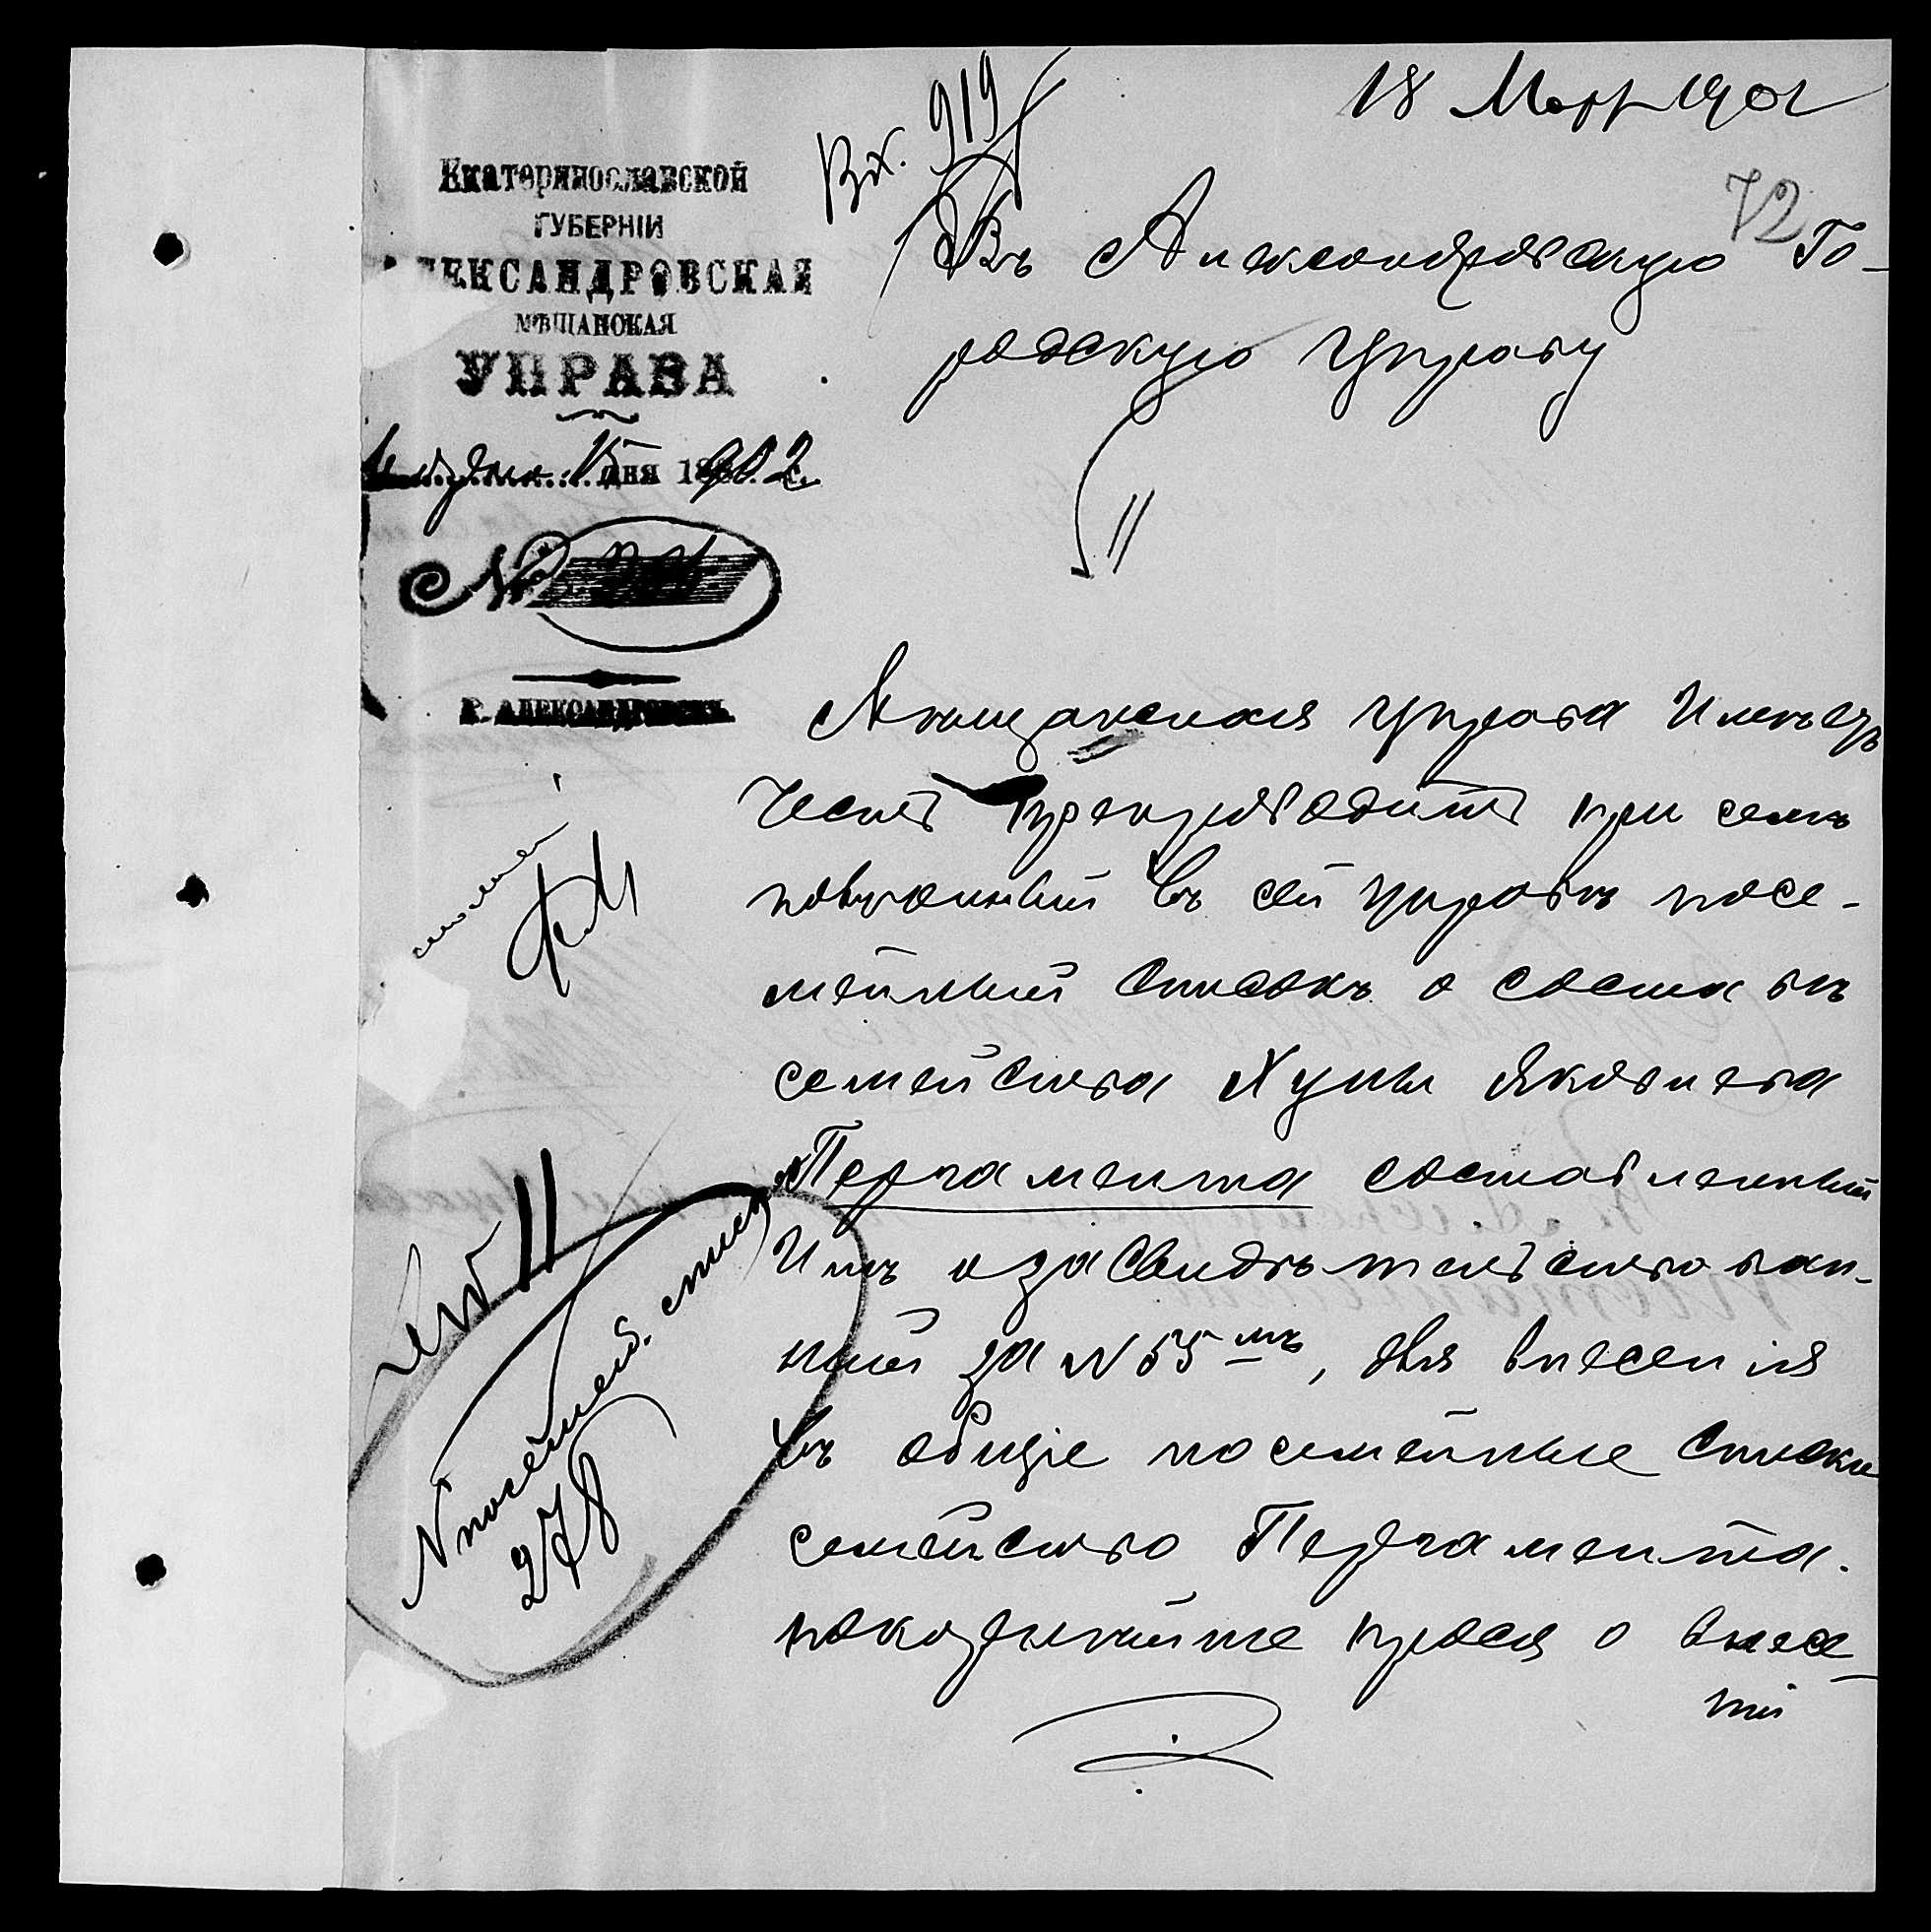 18 Март 1902
Вх. 919
72
Екатеринославской
ГУБЕРНІИ
ЛЕКСАНДРОВСКАЯ
МѢЩАНСКАЯ
УПРАВА
15 дня 1902 г.
№
Г. АЛЕКСАНДРОВСКЪ.
Въ Александровскую Го-
родскую Управу
Мѣщанская Управа Имѣетъ
честь препроводить при семъ
полученный въ сей Управѣ посе-
мейный списокъ о составѣ
семейства Хуны Яковлева
Пергамента составленный
Имъ и засвидѣтельствован-
ный за № 55мъ, для внесенія
въ общіе посемейные списки
семейство Пергамента.
покорнѣйше прося о внесе-
ніи
№ посемейн. списка
278